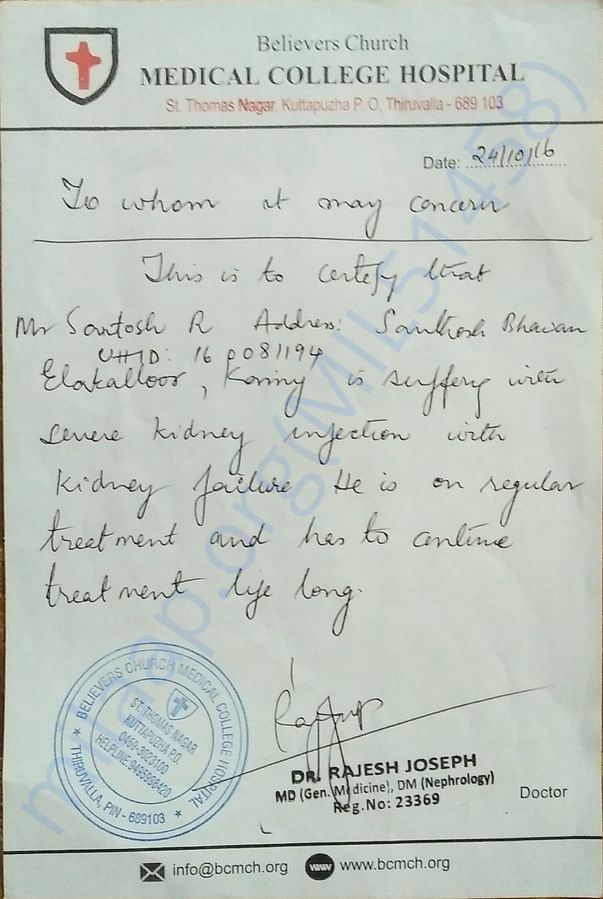 Believers Church
MEDICAL COLLEGE HOSPITAL
St. Thomas Nagar, Kuttapuzha P. O, Thiruvalla - 689 103
Date: 24/10/16
To whom it may concern
This is to certify that
Mr Santosh R Address: Santhosh Bhavan
UHID: 16 0081194
Elakalloor, Konny is suffering with
severe kidney infection with
kidney failure He is on regular
treatment and has to continue
treatment life long.
BELIEVERS CHURCH MEDICAL COLLEGE HOSPITAL
ST. THOMAS NAGAR
KUTTAPUZHA P.O.
0469-3023100
THIRUVALLA, PIN - 689103
DR. RAJESH JOSEPH
MD (Gen. Medicine), DM (Nephrology)
Reg.No: 23369
Doctor
info@bcmch.org www www.bcmch.org
milaap.org(MIL51458)